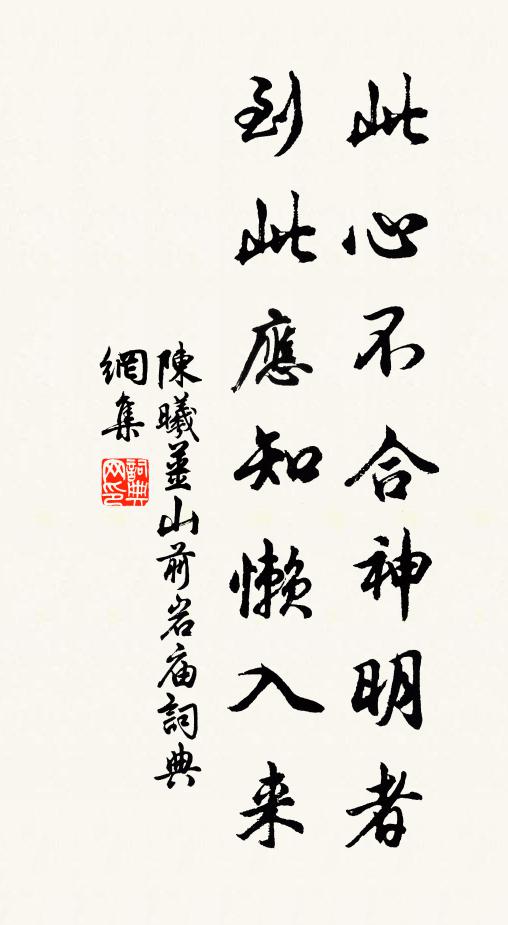 此心不合神明者
到此應知懶入来
陳曦薑山前岩庙詞典
網集
詞典网印